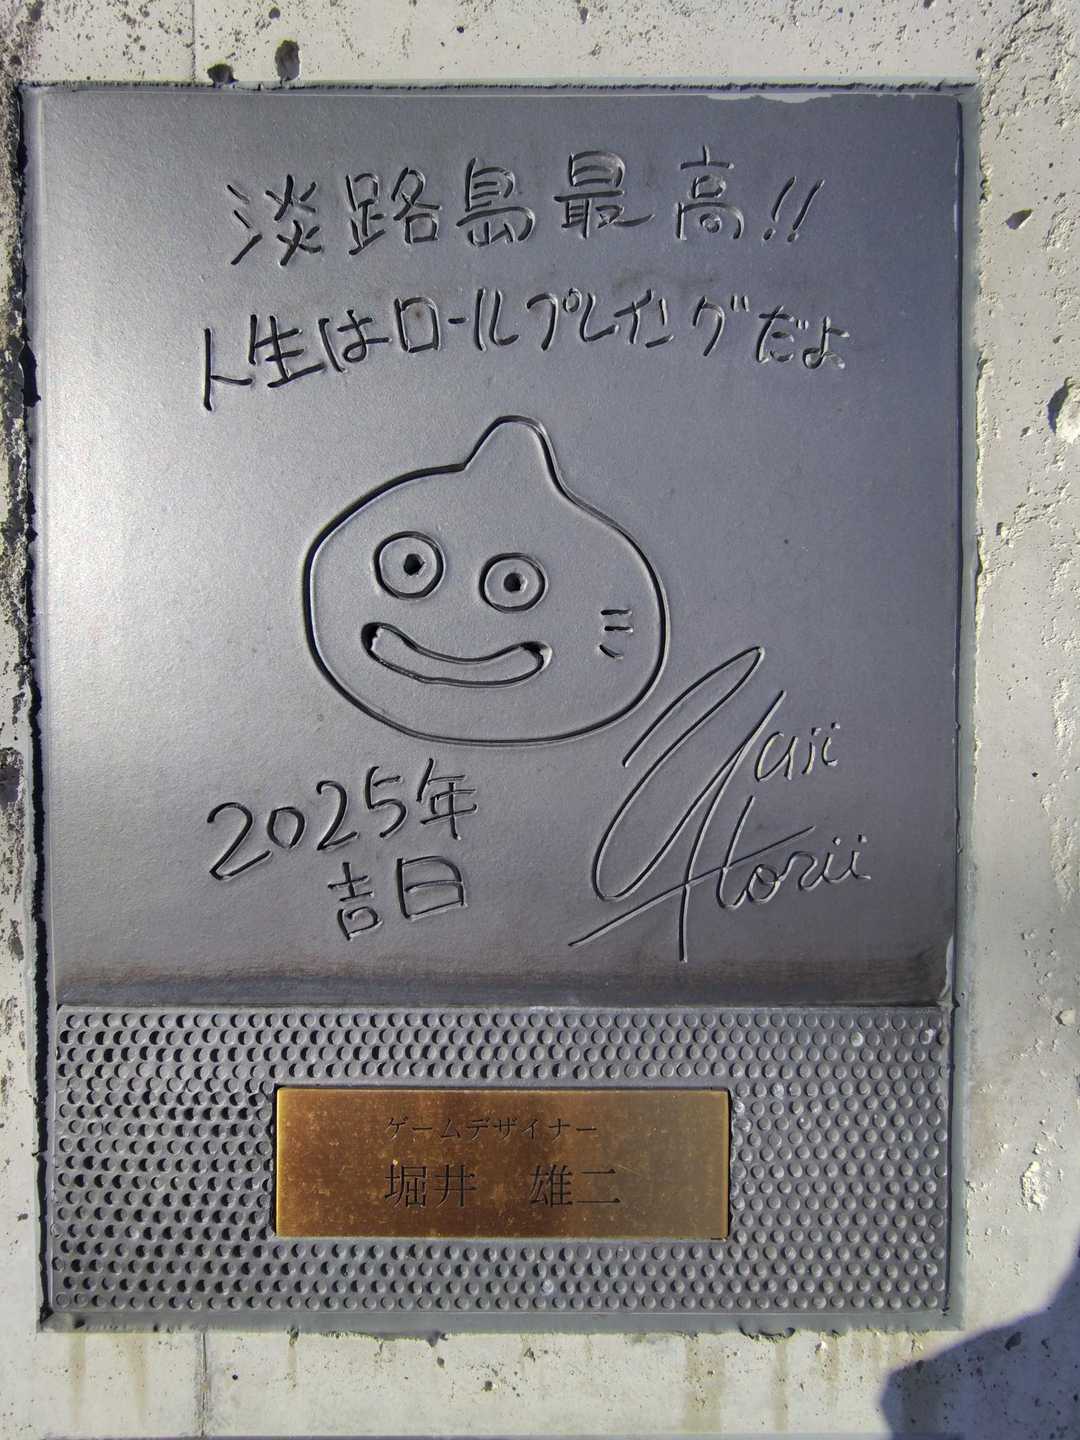 淡路島最高!!
人生はロールプレイングだよ
2025年
吉日
Yuji
Horii
ゲームデザイナー
堀井 雄二